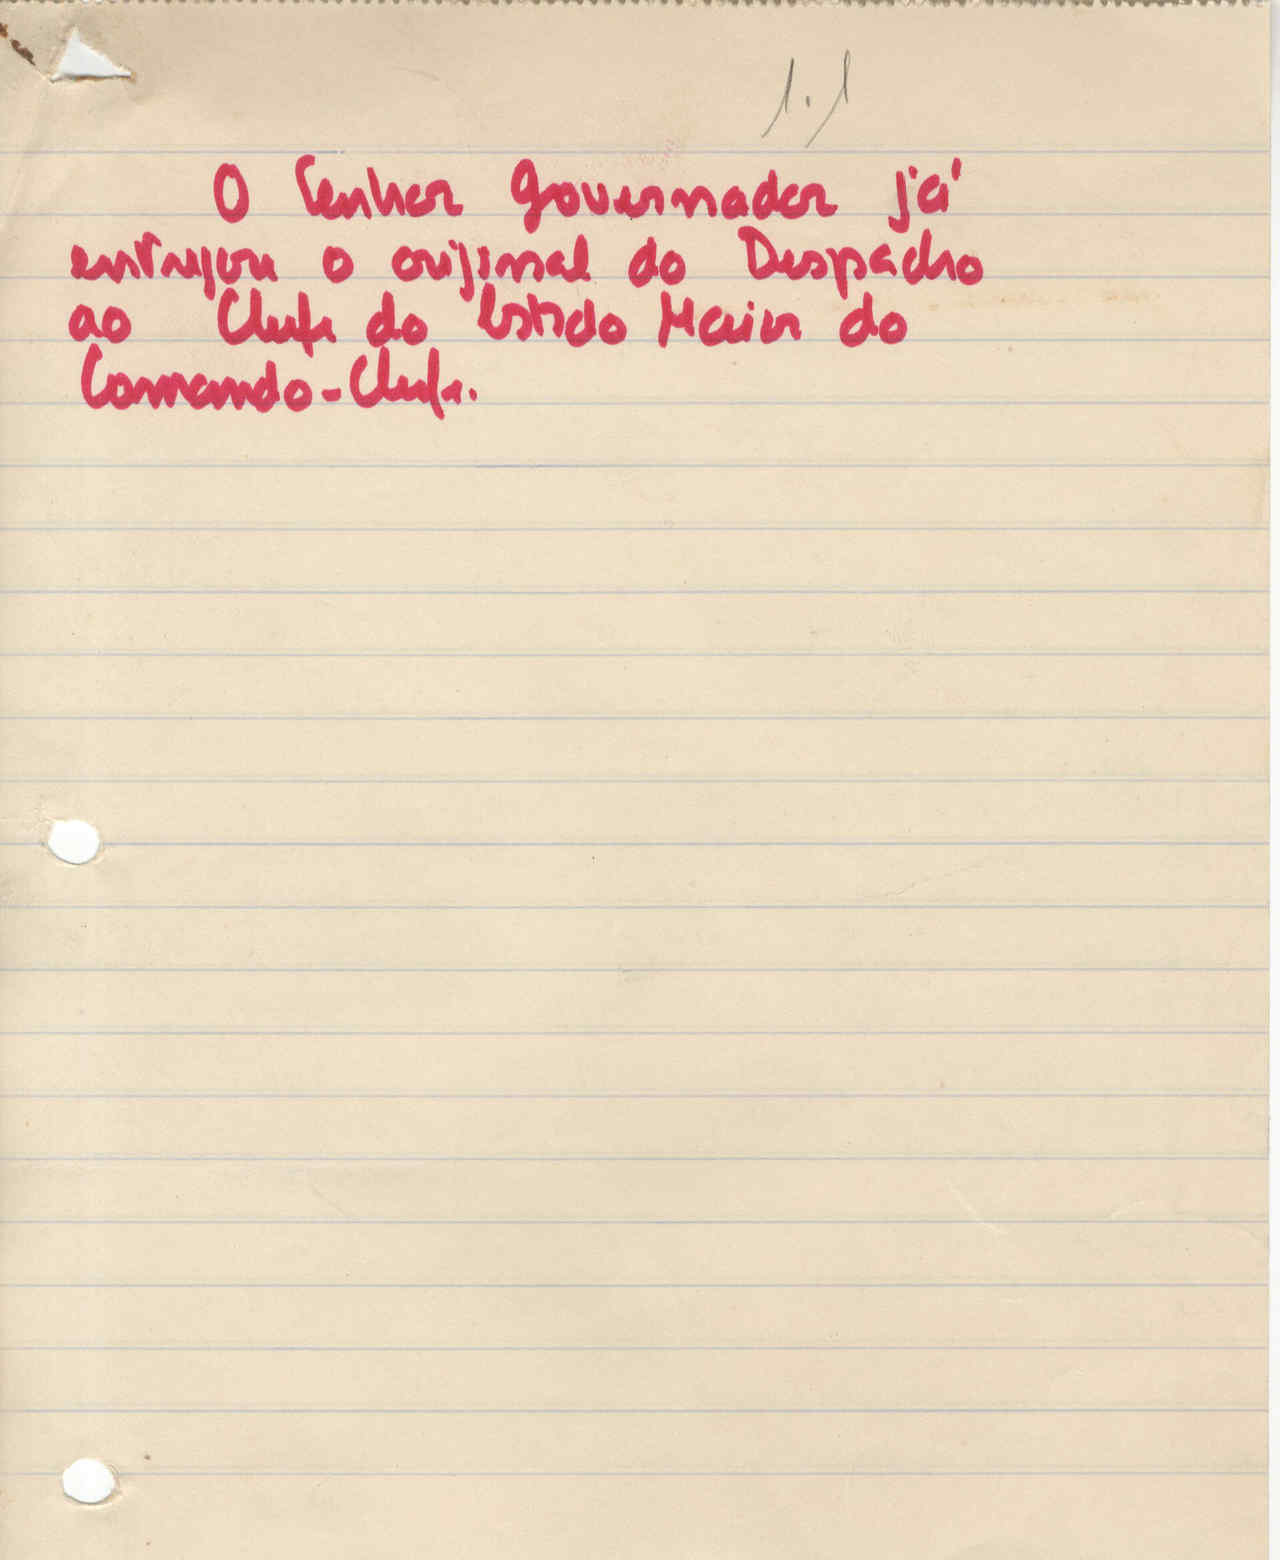 1.1
O Senhor Governador já
entregou o original do Despacho
ao Chefe do Estado Maior do
Comando-Chefe.